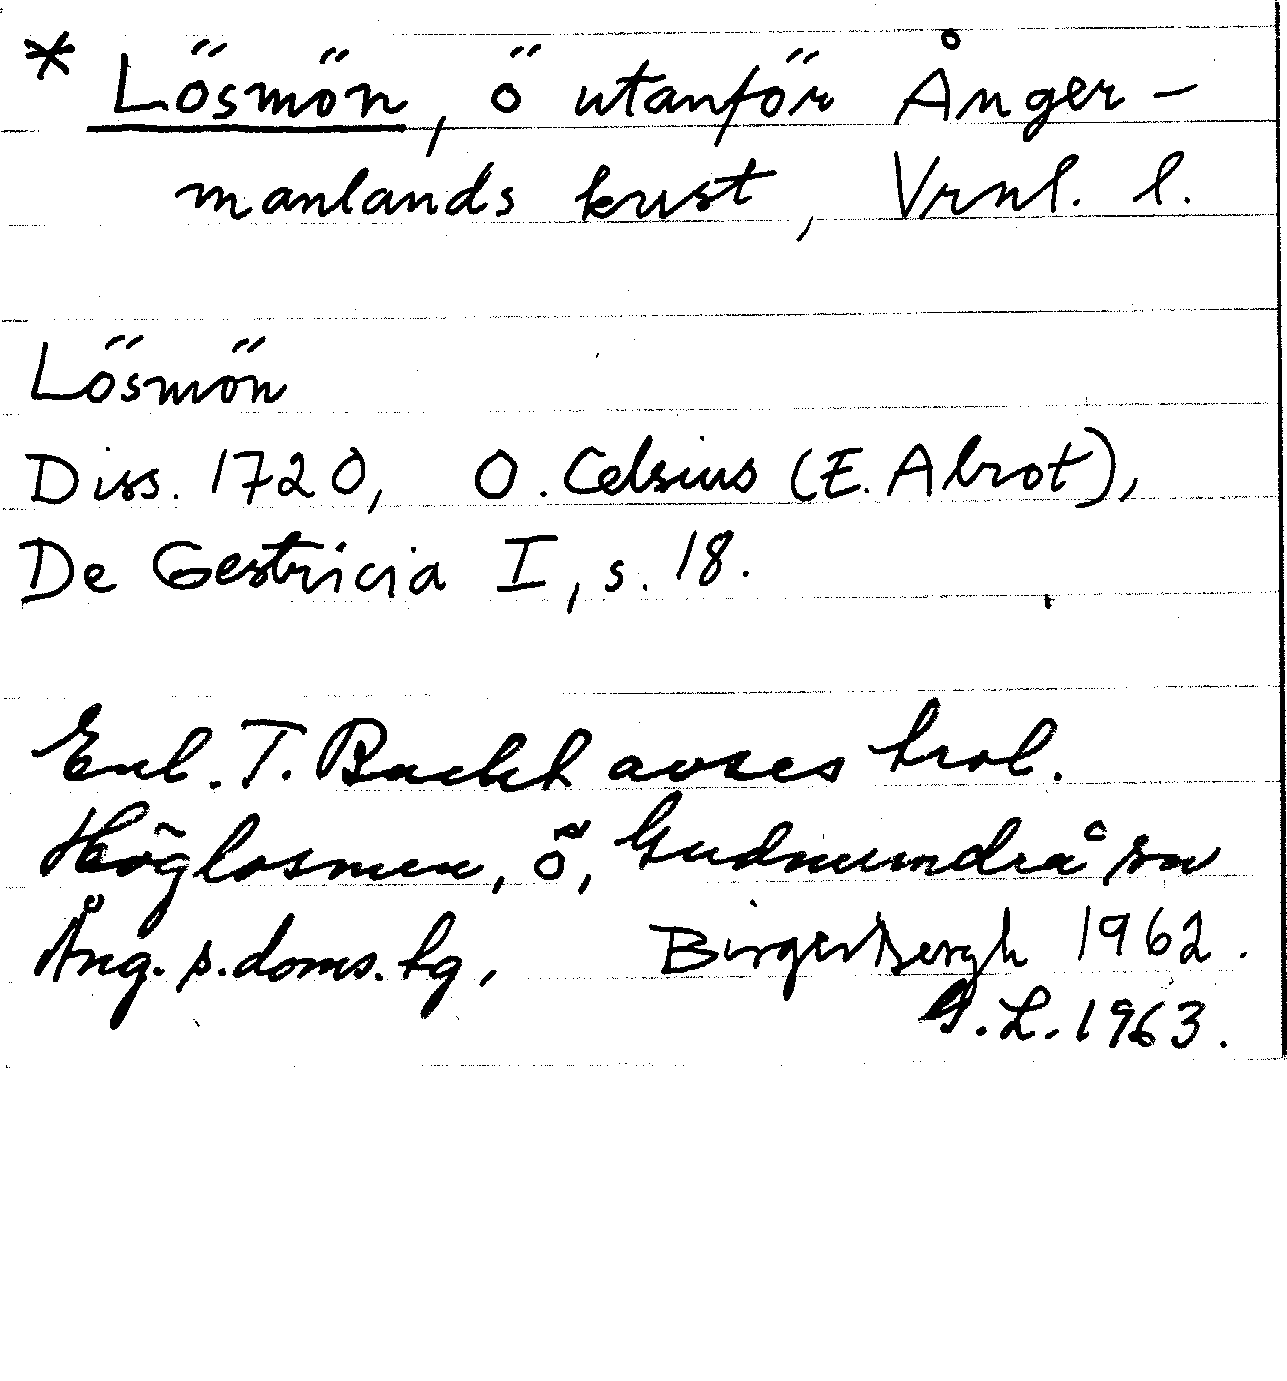 * Lösmön, ö utanför Ånger-
manlands kust, Vrnl. l.
Lösmön
Diss. 1720, O. Celsius (E. Abrot),
De Gestricia I, s. 18.
Enl. T. Bucht avses trol.
Höglosmen, ö, Gudmundrå sn
Ång. s. doms. tg,
Birger Bergh 1962.
G. L. 1963.